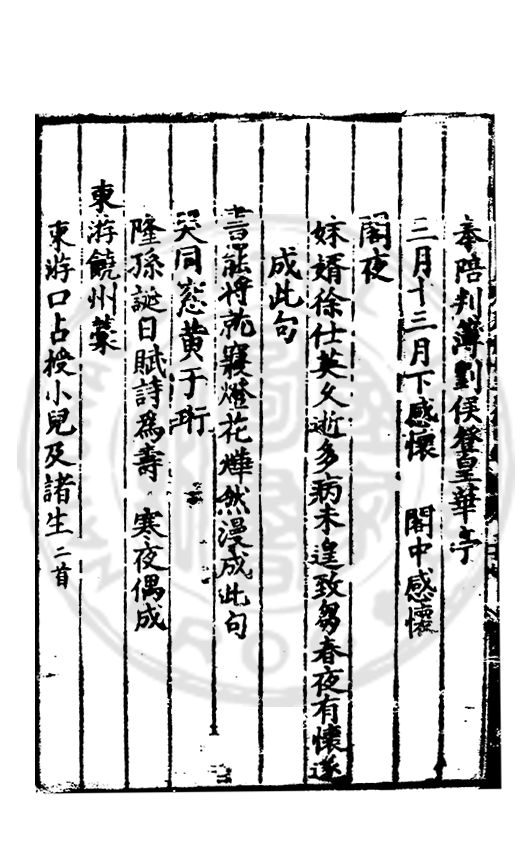 奉陪判簿劉侯登皇華亭
三月十三月下感懷　閣中感懷
閣夜
妹婿徐仕英久逝多病未遑致芻春夜有懷遂
成此句
書罷將就寢燈花燁然漫成此句
哭同窓黄于珩
隆孫誕日賦詩為壽　寒夜偶成
東游饒州藁
東游口占授小兒及諸生二首